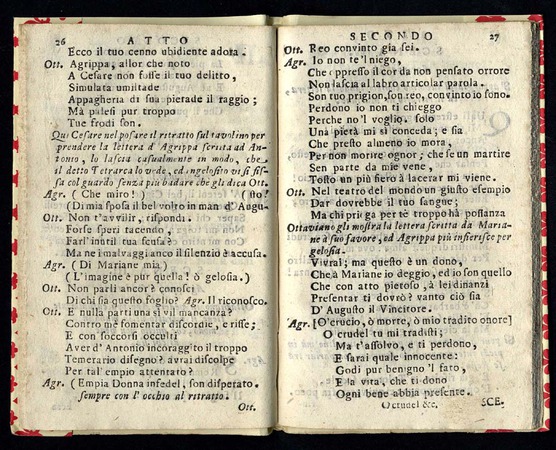 26 ATTO
Ecco il tuo cenno ubidiente adora.
Ott. Agrippa, allor che noto
A Cesare non fosse il tuo delitto,
Simulata umiltade
Appagheria di sua pierade il raggio;
Mà palesi pur troppo
Tue frodi son.
Qui Cesare nel posare il ritratto sul tavolino per
prendere la lettera d'Agrippa scritta ad An-
tonio, lo lascia casualmente in modo, che
il detto Tetrarca lo vede, ed ingelosito vi si fis-
sa col guardo senza più badare che gli dica Ott.
Agr. ( Che miro! ) (no!
(Di mia sposa il bel volto in man d'Augu-
Ott. Non t'avvilir, rispondi.
Forse speri tacendo,
Farl'inutil tua scusa?
Ma ne i malvaggi anco il silenzio è accusa.
Agr. (Di Mariane mia)
(L'imagine è pur quella! ò gelosia.)
Ott. Non parli ancor? conosci
Di chi sia questo foglio? Agr. Il riconosco.
Ott. E nulla parti una sì vil mancanza?
Contro mè fomentar discordie, e risse;
E con soccorsi occulti
Aver d'Antonio incoraggito il troppo
Temerario disegno? avrai discolpe
Per tal'empio attentato?
Agr. (Empia Donna infedel, son disperato.
sempre con l'occhio al ritratto.
Ott.
SECONDO 27
Ott. Reo convinto gia sei.
Agr. Io non te'l niego,
Che oppresso il cor da non pensato orrore
Non lascia al labro articolar parola.
Son tuo prigion, son reo, convinto io sono.
Perdono io non ti chieggo
Perche no'l voglio. solo
Una pietà mi si conceda; e sia
Che presto almeno io mora,
Per non morire ognor; che se un martire
Sen parte da mie vene,
Tosto un più fiero à lacerar mi viene.
Ott. Nel teatro del mondo un giusto esempio
Dar dovrebbe il tuo sangue;
Ma chi priega per tè troppo hà possanza
Ottaviano gli mostra la lettera scritta da Maria-
ne à suo favore, ed Agrippa più infierisce per
gelosia.
Vivrai; ma questo è un dono,
Che à Mariane io deggio, ed io son quello
Che con atto pietoso, à lei dinanzi
Presentar ti dovrò? vanto ciò sia
D'Augusto il Vincitore.
Agr. [O crucio, ò morte, ò mio tradito onore]
O crudel tu mi tradisti;
Ma t'assolvo, e ti perdono,
E sarai quale innocente:
Godi pur benigno'l fato,
E la vita, che ti dono
Ogni bene abbia presente.
O crudel &c. SCE.